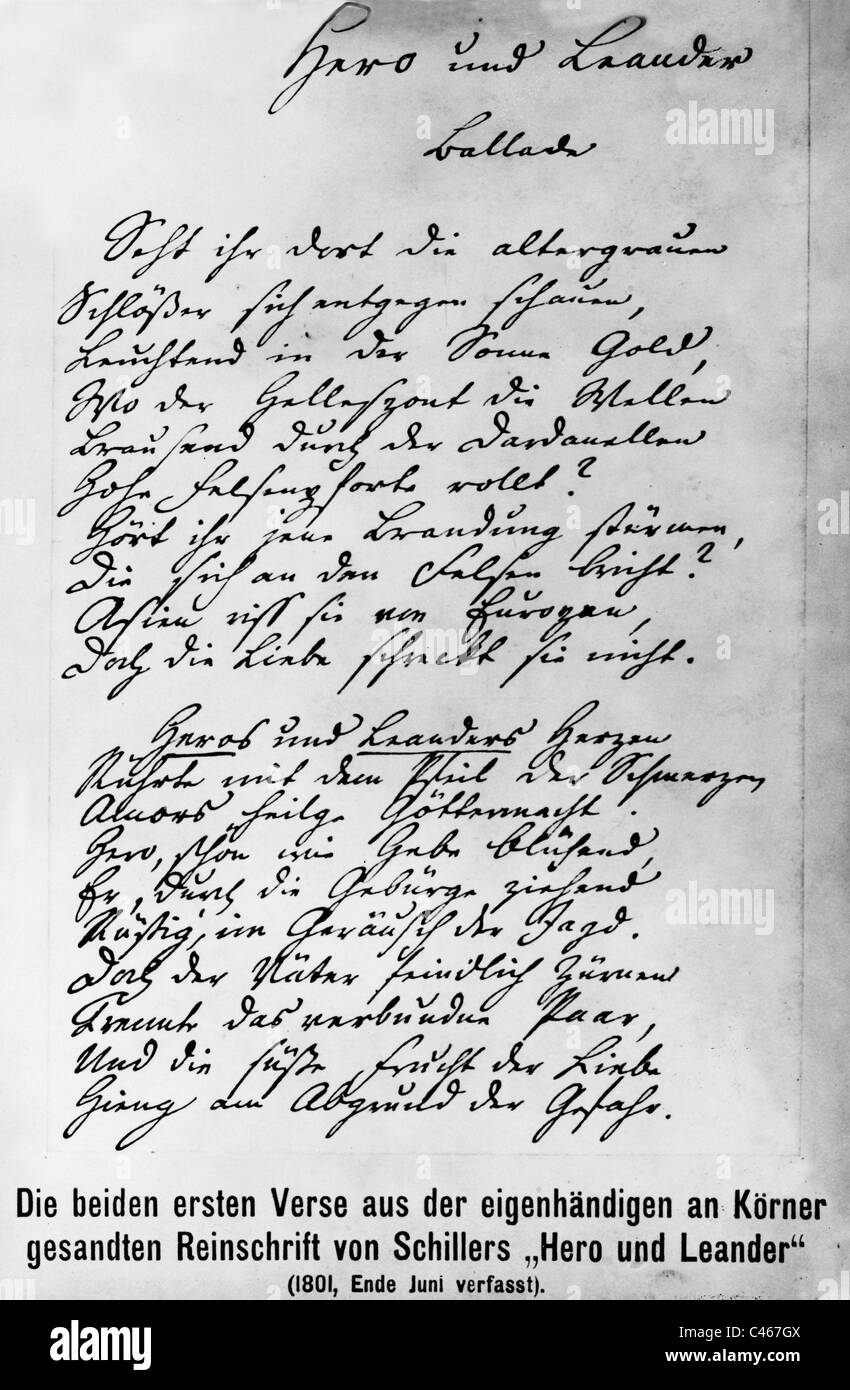 Hero und Leander
Ballade
Seht ihr dort die altergrauen
Schlößer sich entgegen schauen,
Leuchtend in der Sonne Gold,
Wo der Hellespont die Wellen
Brausend durch der Dardanellen
Hohe Felsenpforte rollt?
Hört ihr jene Brandung stürmen,
Die sich an den Felsen bricht?
Asien riss sie von Europen,
Doch die Liebe schreckt sie nicht.
Heros und Leanders Herzen
Rührte mit dem Pfeil der Schmerzen
Amors heilge Göttermacht.
Hero, schön wie Hebe blühend,
Er, durch die Gebürge ziehend
Rüstig, im Geräusch der Jagd.
Doch der Väter feindlich Zürnen
Trennte das verbundne Paar,
Und die süße Frucht der Liebe
Hieng am Abgrund der Gefahr.
Die beiden ersten Verse aus der eigenhändigen an Körner
gesandten Reinschrift von Schillers „Hero und Leander“
(1801, Ende Juni verfasst).
alamy
Image ID: C467GX
www.alamy.com